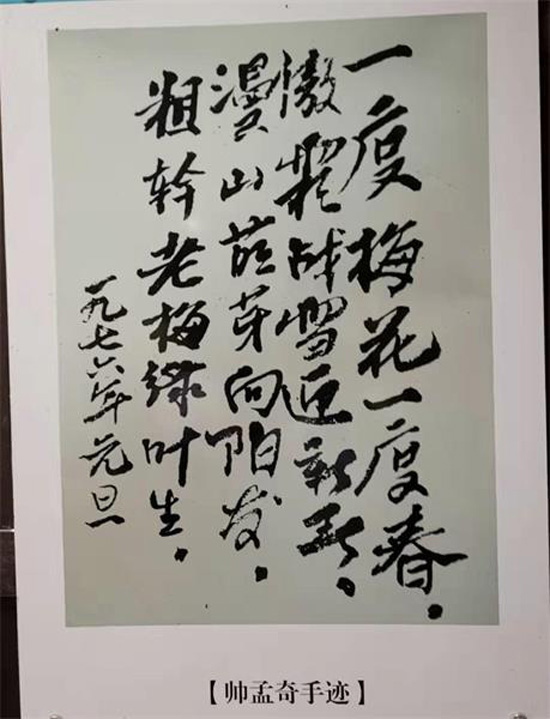 一度梅花一度春。
傲战雪迎新。
漫山芽向阳发。
粗幹老梅绿叶生。
一九七六年元旦
【帅孟奇手迹】